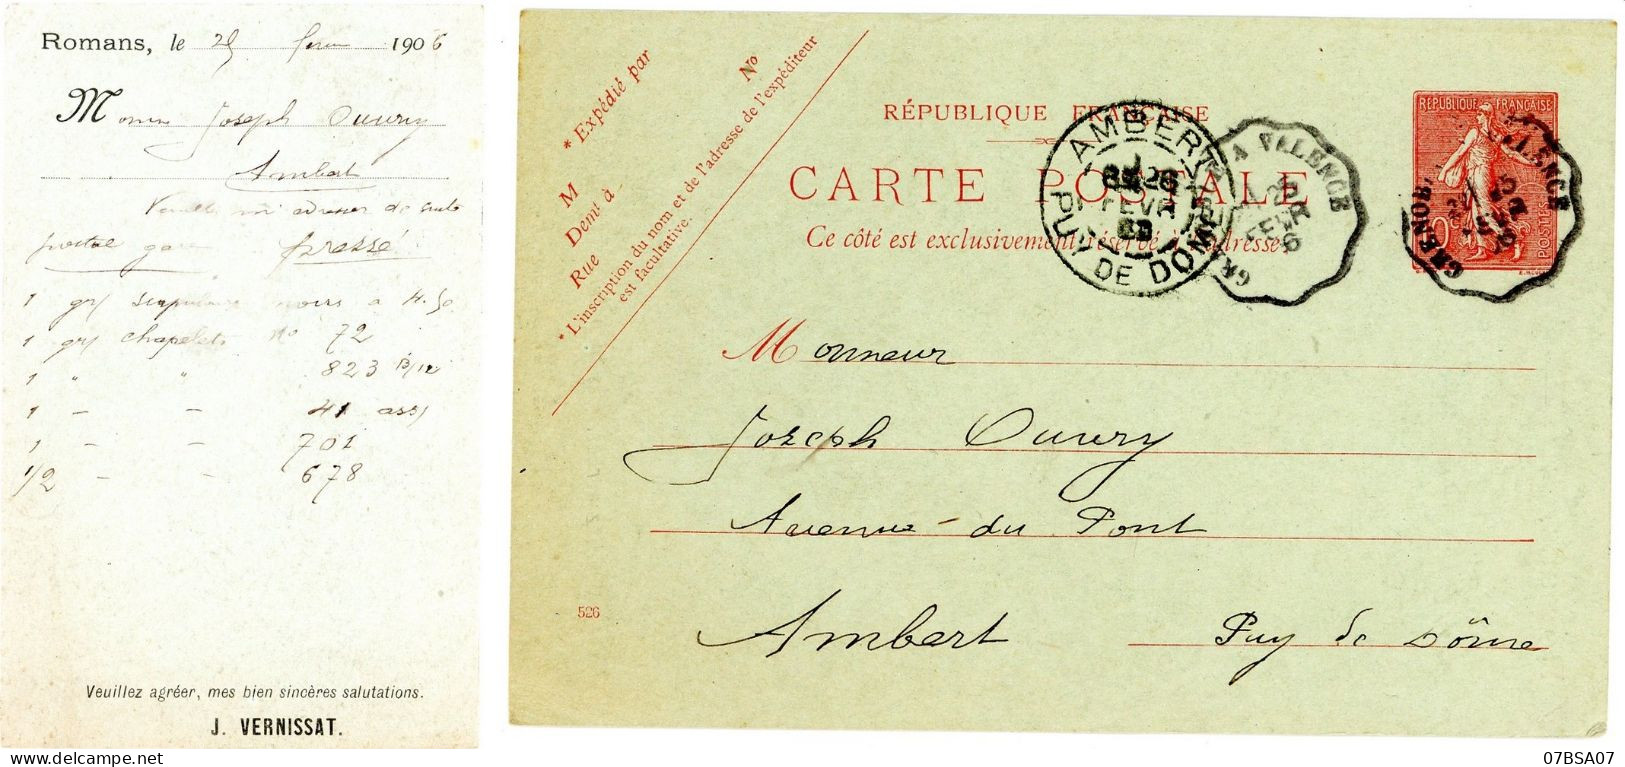 Romans, le 25 1906
Monsieur Joseph Ouvry
Ambert
adresser de suite
postal gare pressé
1 gr/ noirs a 4.50
1 gr/ chapelets No 72
1 " " 823
1 - - 41 ass/
1 - - 701
1/2 - - 678
Veuillez agréer, mes bien sincères salutations.
J. VERNISSAT.
* Expédié par
M No
Demt à
Rue
* L'inscription du nom et de l'adresse de l'expéditeur
est facultative.
RÉPUBLIQUE FRANÇAISE
CARTE POSTALE
Ce côté est exclusivement réservé à l'adresse.
AMBERT
26
FEVR
PUY DE DOME
A VALENCE
FEVR
6
RÉPUBLIQUE FRANÇAISE
POSTES
GRENOB.
Monsieur
Joseph Ouvry
Avenue du Pont
Ambert Puy de Dôme
526
07BSA07